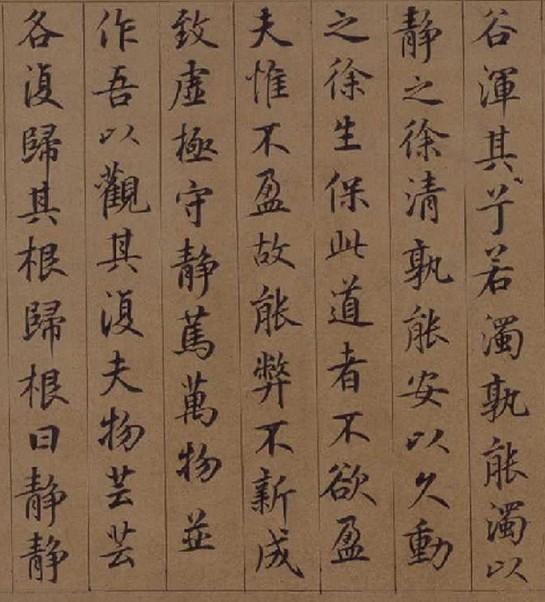 谷渾其兮若濁孰能濁以
静之徐清孰能安以久動
之徐生保此道者不欲盈
夫惟不盈故能弊不新成
致虚極守静篤萬物並
作吾以觀其復夫物芸芸
各復歸其根歸根曰静静